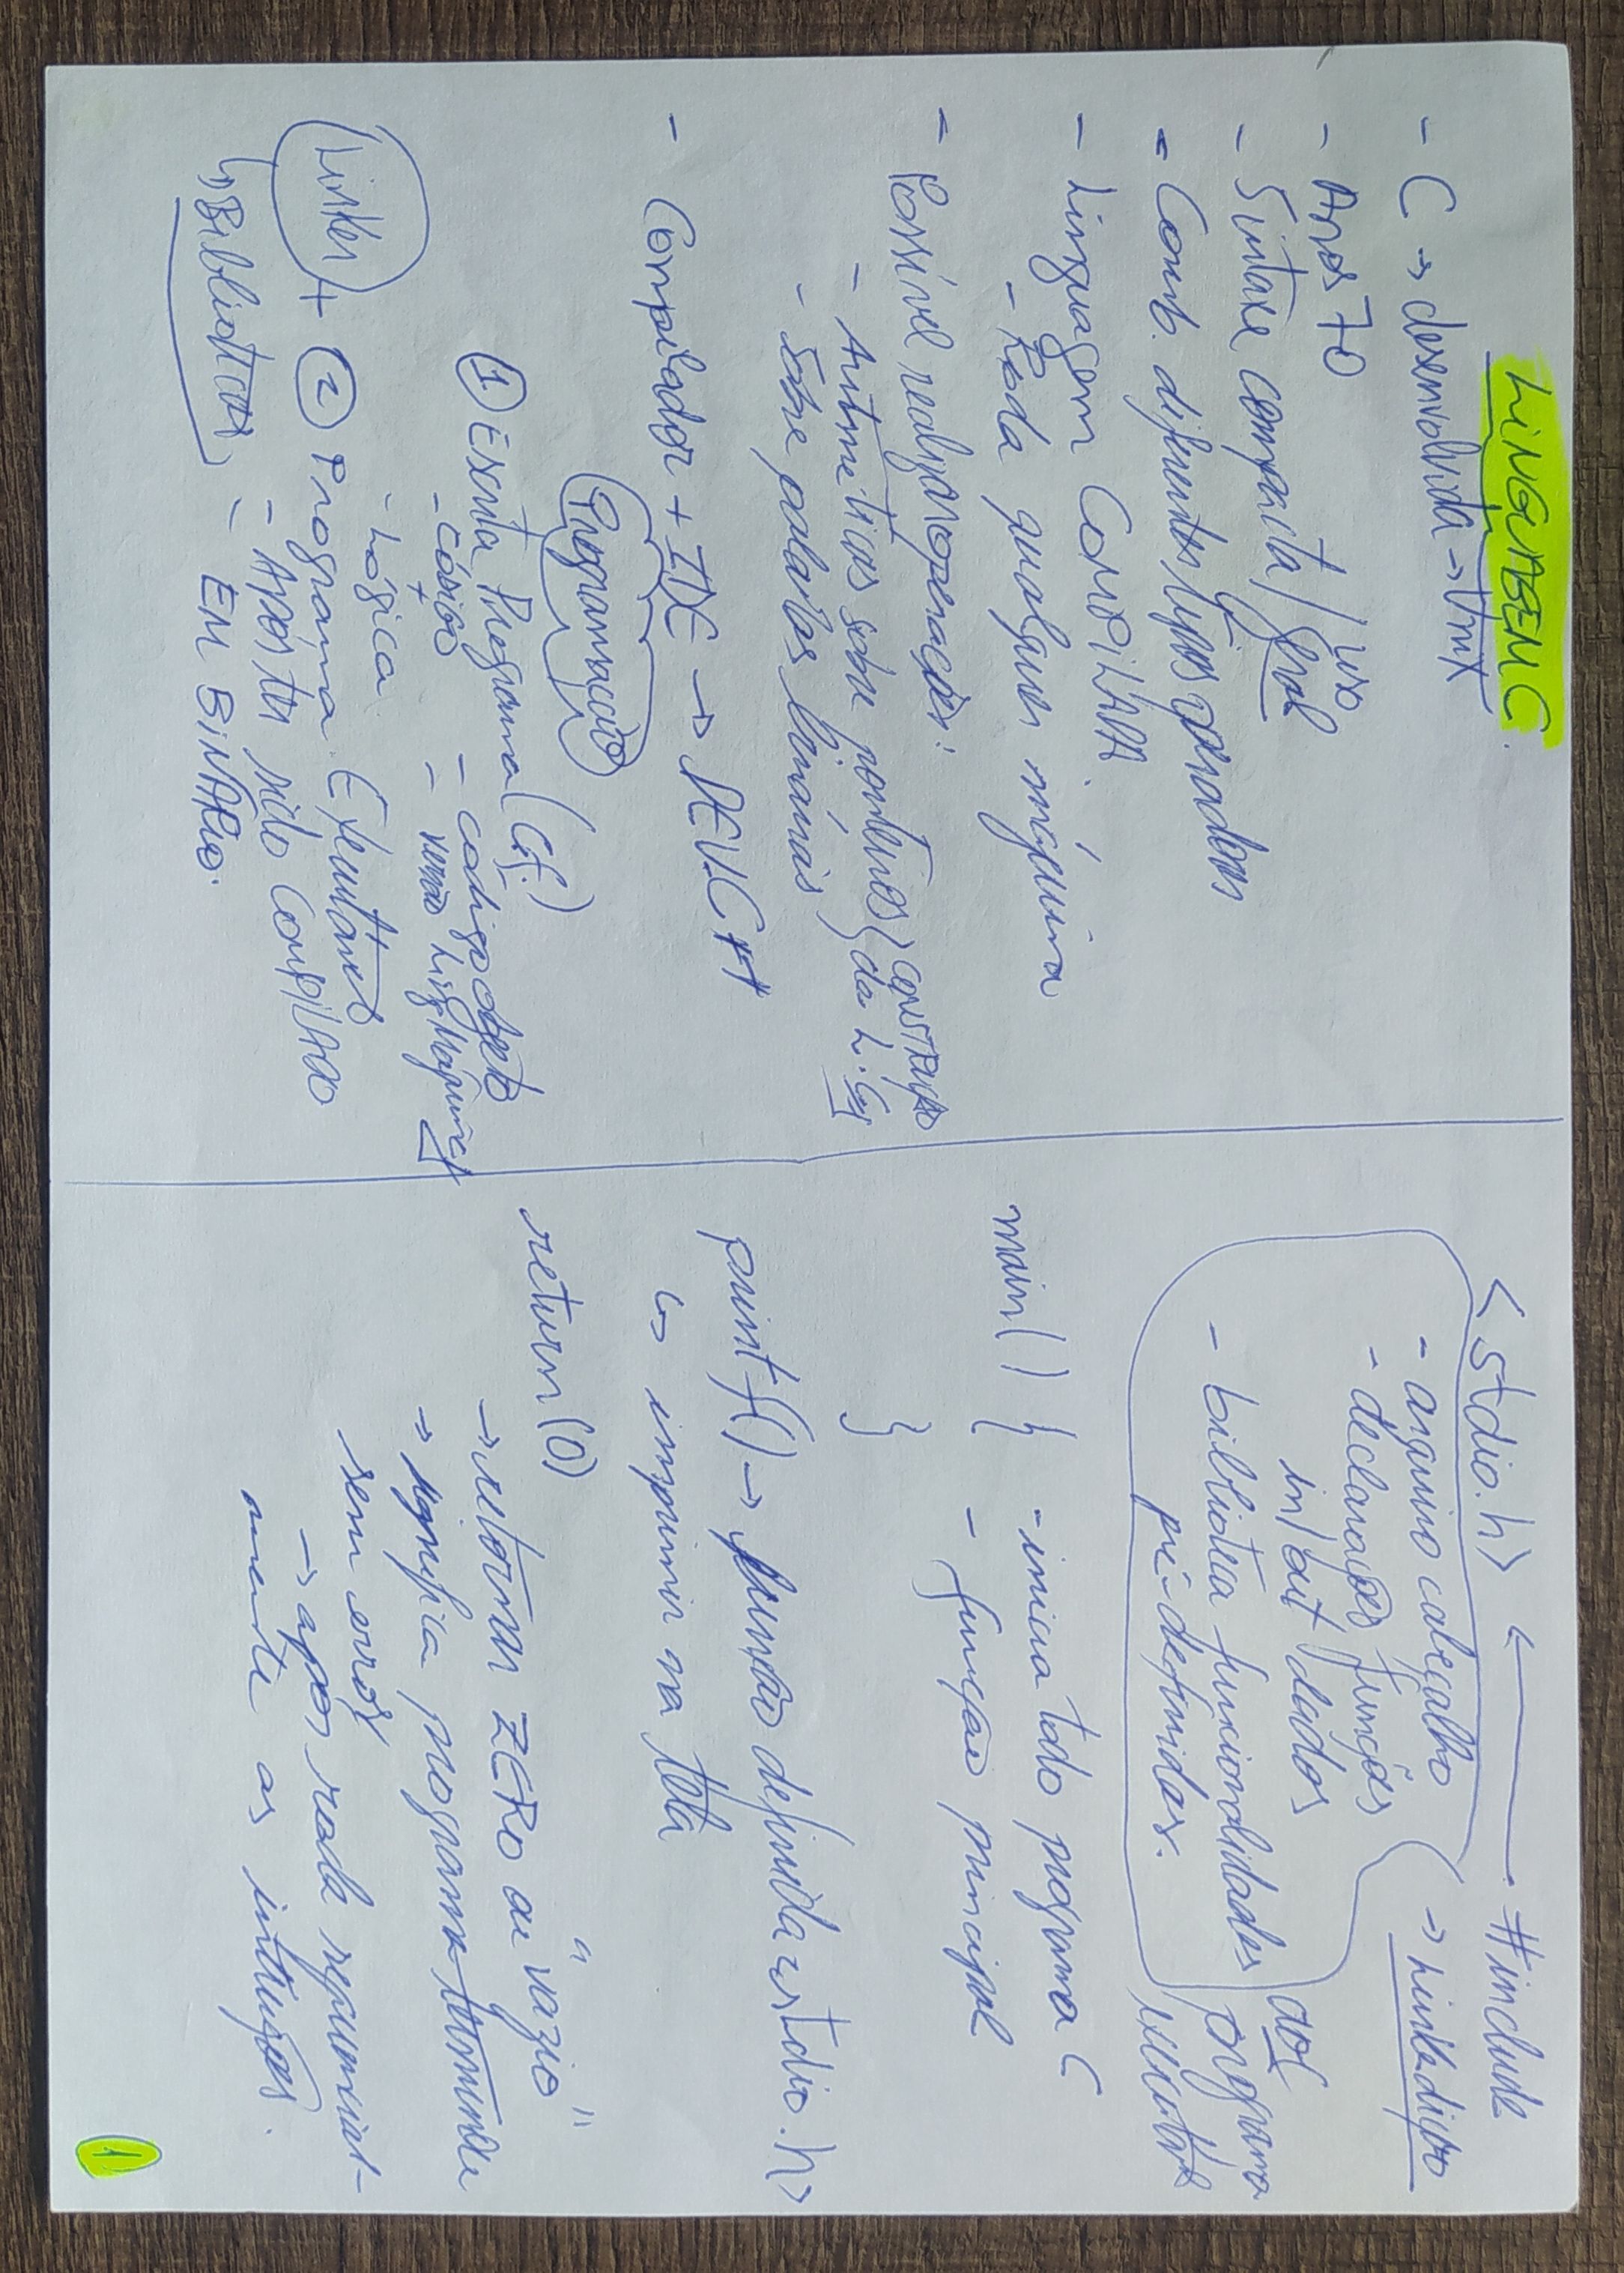 LINGUAGEM C.
- C → desenvolvida → Unix
- Anos 70
- Sintaxe compacta / uso geral
- Comb. diferentes tipos operadores
- Linguagem COMPILADA.
- Roda qualquer máquina
- Possível realizar operações:
- Aritméticas sobre ponteiros } CONSTRUÇÃO
- Sobre palavras binárias } da L. C
- Compilador + IDE → DEV-C++
Programação
① Escrita Programa (Cf.)
- CÓDIGO
+
- Lógica
- código objeto
- versão Ling Máquina
Linker + ② Programa Executável
↳ Bibliotecas
- APÓS ter sido COMPILADO
- EM BINÁRIO.
<stdio.h> ← #include
→ Linkedição
- arquivo cabeçalho
- declarações funções
in/out dados
- biblioteca funcionalidades
pré-definidas.
aos
programa
main() { - inicia todo programa C
- função principal
}
printf() → função definida <stdio.h>
↳ imprimir na tela
return(0)
→ retornar ZERO ou "vazio"
→ significa programa termina
sem erros
→ após roda sequencial-
mente as intruções.
1